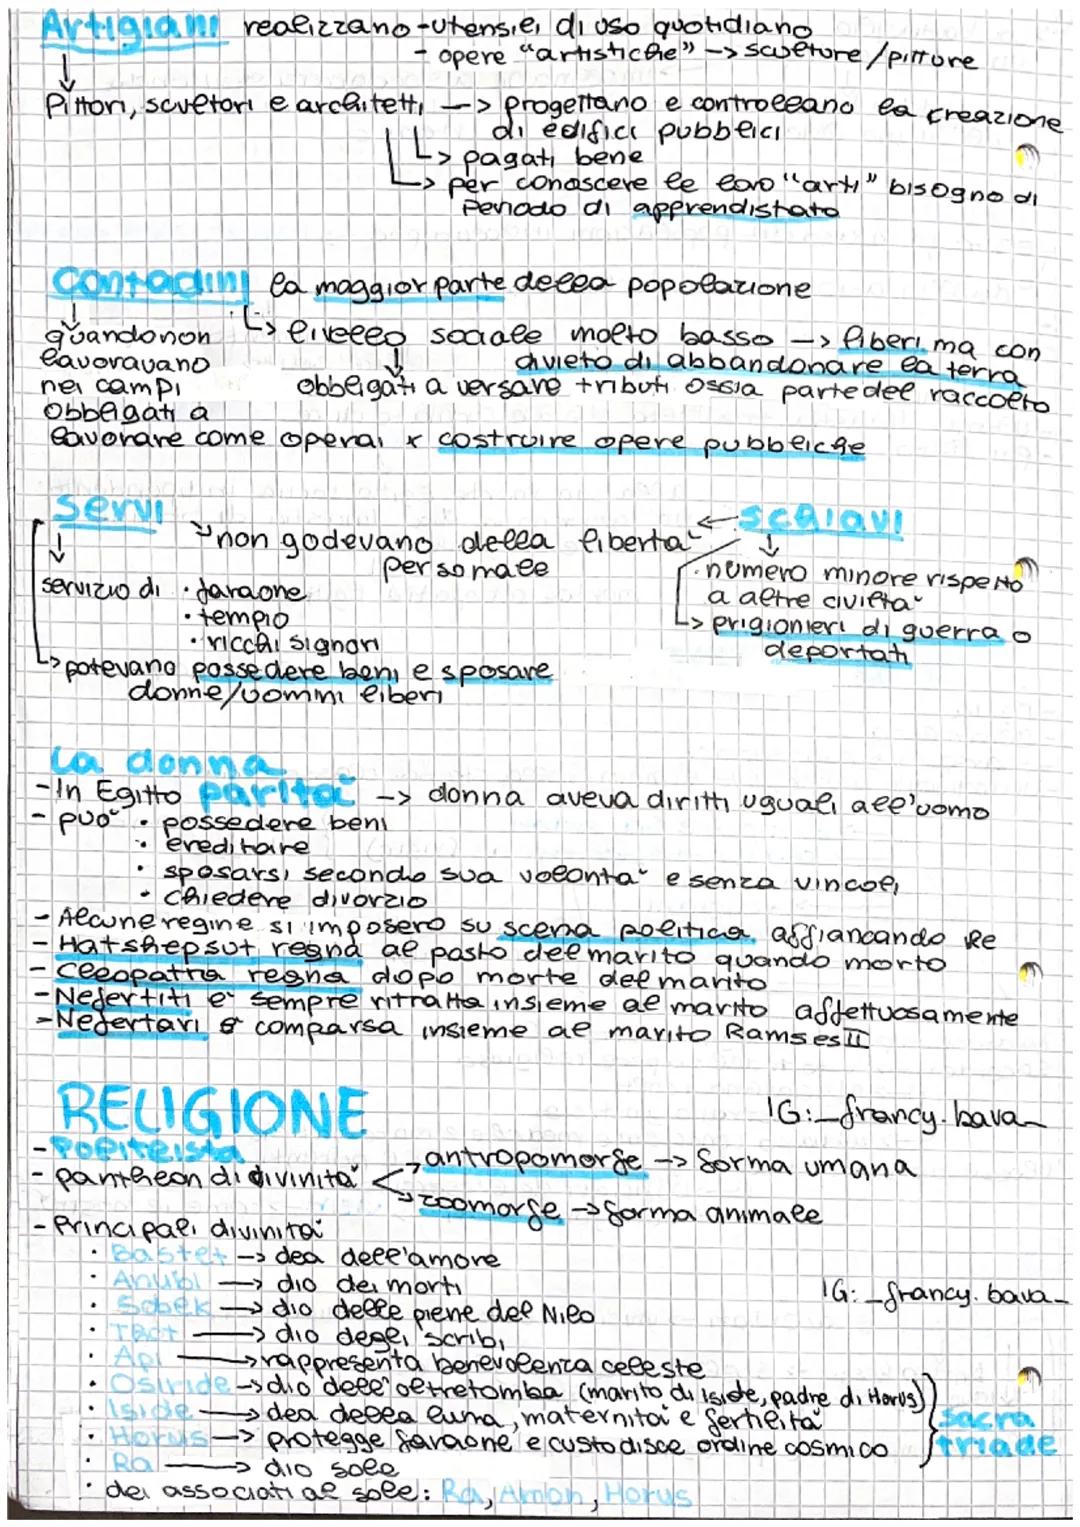 Artigiani realizzano - utensili di uso quotidiano
- opere "artistiche" -> scultore/pittore
Pittori, scultori e architetti -> progettano e controllano la creazione
di edifici pubblici
-> pagati bene
-> per conoscere le loro "arti" bisogno di
periodo di apprendistato
Contadini la maggior parte della popolazione
quando non -> livello sociale molto basso -> liberi ma con
lavoravano divieto di abbandonare la terra
nei campi obbligati a versare tributi ossia parte del raccolto
obbligati a
lavorare come operai x costruire opere pubbliche
servi schiavi
non godevano della libertà
personale
· numero minore rispetto
servizio di · faraone a altre civiltà
· tempio -> prigionieri di guerra o
· ricchi signori deportati
-> potevano possedere beni e sposare
donne/uomini liberi
La donna
- In Egitto parità -> donna aveva diritti uguali all'uomo
- può · possedere beni
· ereditare
· sposarsi secondo sua volontà e senza vincoli
· chiedere divorzio
- Alcune regine si imposero su scena politica affiancando Re
- Hatshepsut regna al posto del marito quando morto
- Cleopatra regna dopo morte del marito
- Nefertiti è sempre ritratta insieme al marito affettuosamente
- Nefertari è comparsa insieme al marito Ramses II
RELIGIONE
IG: _francy.bava_
- Politeista
- pantheon di divinità -> antropomorfe -> forma umana
-> zoomorfe -> forma animale
- Principali divinità
· Bastet -> dea dell'amore
· Anubi -> dio dei morti
IG: _francy.bava_
· Sobek -> dio delle piene del Nilo
· Thot -> dio degli scribi
· Api -> rappresenta benevolenza celeste
· Osiride -> dio dell'oltretomba (marito di Iside, padre di Horus)
· Iside -> dea della luna, maternità e fertilità
· Horus -> protegge faraone e custodisce ordine cosmico
sacra
triade
· Ra -> dio sole
· dei associati al sole: Ra, Amon, Horus